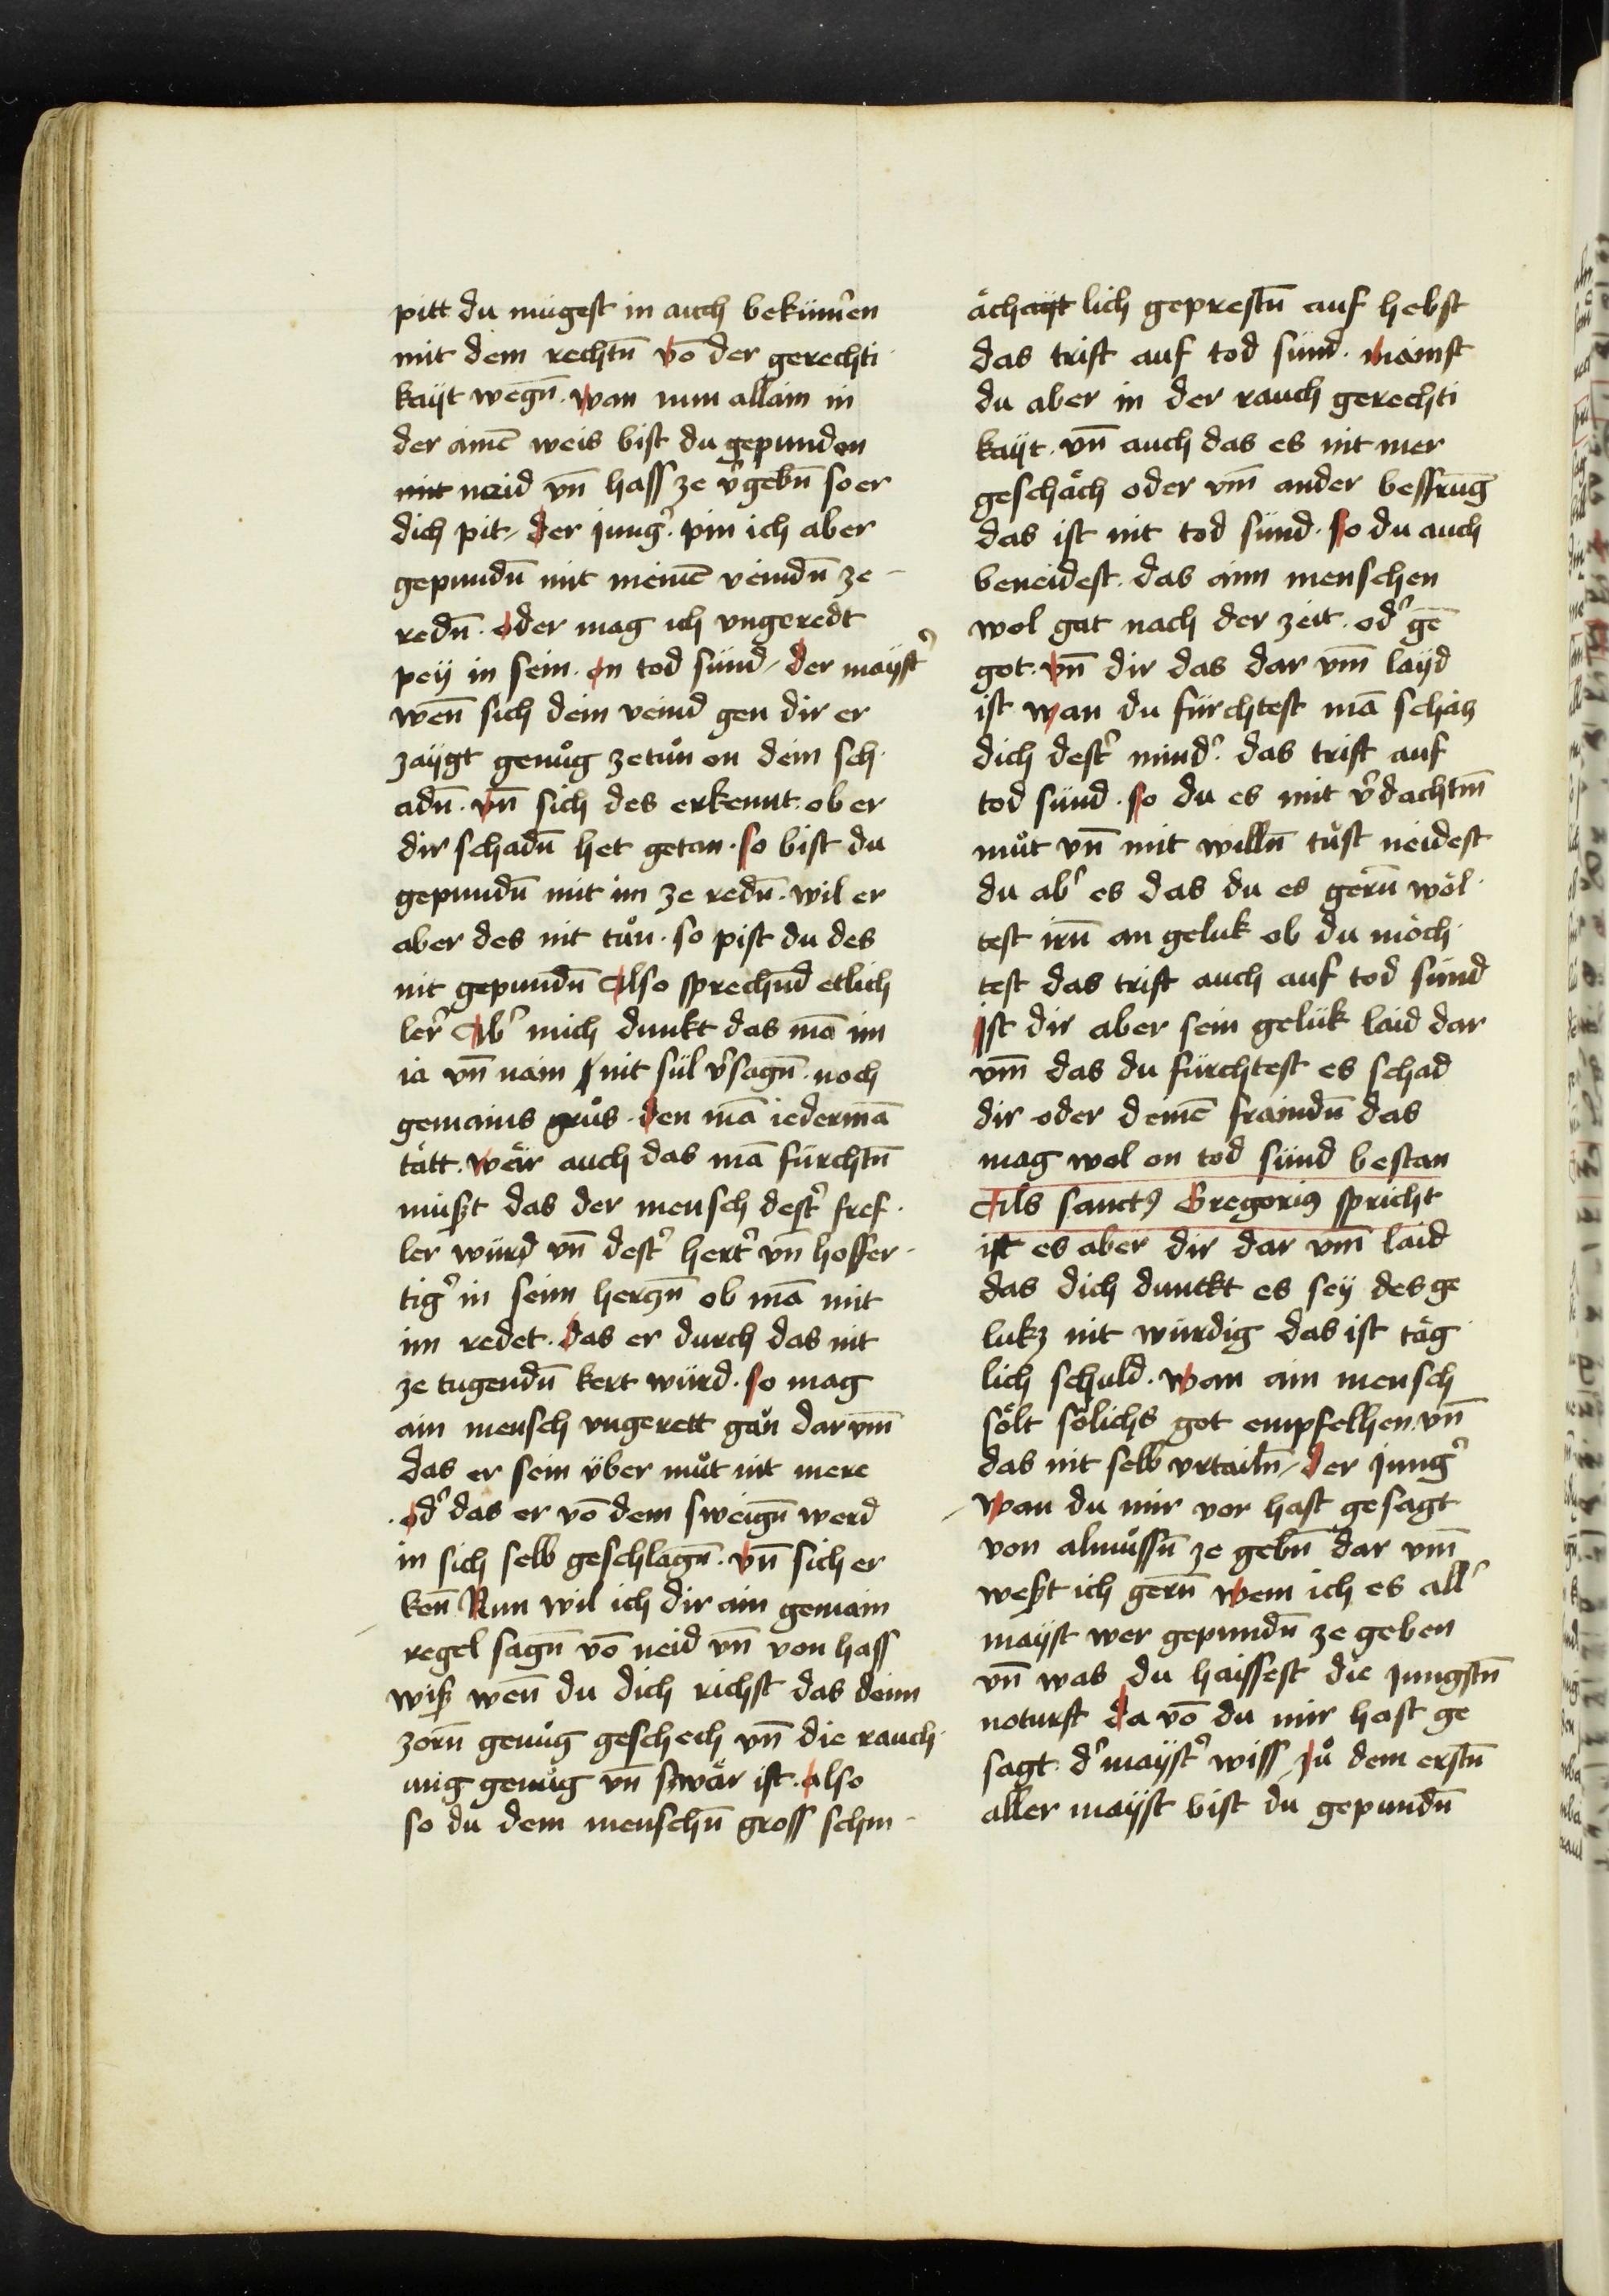 pitt du mügest in auch bekümẽn
mit dem rechtn̄ vō der gerechti
kayt wegn̄. wan nun allain in
der ainē weis bist du gepunden
mit neid vn̄ hass ze v̾gebn̄ so er
dich pit / der jung̾. pin ich aber
gepundn̄ mit meinē veindn̄ ze -
redn̄. oder mag ich vngeredt
pey in sein. on tod sünd / der mayst̾
wen̄ sich dein veind gen dir er
zaygt genůg ze tůn on dein sch
adn̄. vn̄ sich des erkennt. ob er
dir schadn̄ het getan. so bist du
gepundn̄ mit im ze redn̄. wil er
aber des nit tůn. so pist du des
nit gepundn̄ Also sprechnd etlich
ler̾ Ab̾ mich dunkt das mā im
ia vn̄ nain nit sül v̾sagn̄. noch
gemains grůs. den mā iedermā
tätt. wär auch das mā fürchtn̄
müßt das der mensch dest̾ fref
ler würd vn̄ dest̾ hert̾ vn̄ hoffer
tig̾ in seim herczn̄ ob mā mit
im redet. das er durch das nit
ze tugendn̄ kert würd. so mag
ain mensch vngerett gan̊ darvm̄
das er sein über můt nit mere
od̾ das er vō dem sweign̄ werd
in sich selb geschlagn̄. vn̄ sich er
ken̄ Nun wil ich dir ain gemain
regel sagn̄ vō neid vn̄ von hass
wiß wen̄ du dich richst das deim
zorn̄ genůg geschech vn̄ die rauch
nng genůg vn̄ swär ist. also
so du dem menschn̄ gross schm
ächayt lich geprestn̄ auf hebst
das trift auf tod sünd. mainst
du aber in der rauch gerechti
kayt. vn̄ auch das es nit mer
geschäch oder vm̄ ander bessrūg
das ist nit tod sünd. so du auch
beneidest. das aim menschen
wol gat nach der zeit. od̾ gē
got. vn̄ dir das dar vm̄ layd
ist wan du fürchtest mā schäcz
dich dest̾ mind̾. das trift auf
tod sünd. so du es mit v̾dachtm̄
můt vn̄ mit willn̄ tůst neidest
du ab̾ es das du es gern̄ wöl
test irn̄ an geluk ob du möch
test das trift auch auf tod sünd
Ist dir aber sein gelük laid dar
vm̄ das du fürchtest es schad
dir oder deinē fraindn̄ das
mag wol on tod sünd bestan
Als sanctꝰ Gregoriꝰ spricht
ist es aber dir dar vm̄ laid
das dich dunckt es sey des ge
lukz nit würdig das ist täg
lich schuld. wan ain mensch
sölt sölichs got empfelhen. vn̄
das nit selb vrtailn̄ / der jung̾
wan du mir vor hast gesagt
von almůssn̄ ze gebn̄ dar vm̄
weßt ich gern̄ wem ich es all̾
mayst wer gepundn̄ ze geben
vn̄ was du haissest die jungstn̄
noturft da vō du mir hast ge
sagt. d̾ mayst̾ wiss zů dem erstn̄
aller mayst bist du gepundn̄